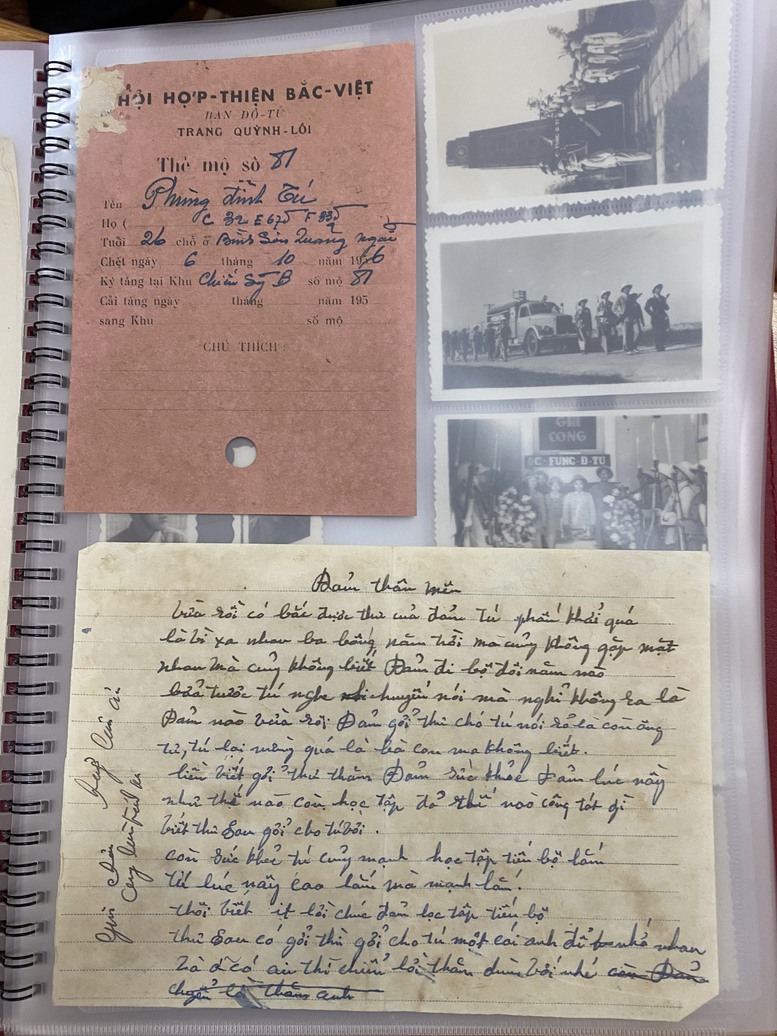 HỘI HỢP-THIỆN BẮC-VIỆT
BAN ĐÔ-TÙ
TRANG QUỲNH-LÔI
Thẻ mộ sò 81
Tên Phùng đình Tú
Họ ( C 32 E 675 F 335
Tuổi 26 chỗ ở Bình Sơn Quảng ngãi
Chết ngày 6 tháng 10 năm 1956
Ký táng tại Khu Chiến Sỹ B số mộ 81
Cải táng ngày tháng năm 195
sang Khu số mộ
CHÚ THÍCH :
GHI
CÔNG
Đảm thân mến
vừa rồi có bắc được thư của đảm tú phấn khởi quá
là vì xa nhau ba bống năm trời mà cũng không gặp mặt
nhau mà cũng không biết Đảm đi bộ đôi năm nào
bửa trước tú nghe chuyến nói mà nghỉ không ra là
Đảm nào vừa rồi Đảm gởi thư cho tú nói rỏ là con ông
tư, tú lại mừng quá là bà con mà không biết.
liền viết gởi thư thăm Đảm sức khỏe Đảm lúc nầy
như thế nào còn học tập đả thế nào công tát gì
viết thư sau gởi cho tú với.
còn sức khoẻ tú cũng mạnh học tập tiến bộ lắm
tú lúc nầy cao lắm mà mạnh lắm.
thôi viết ít lời chúc đảm học tập tiến bộ
thư sau có gởi thì gởi cho tú một cái anh để nhớ nhau
và ở có ai thì chiển lời thăm dùm với nhé